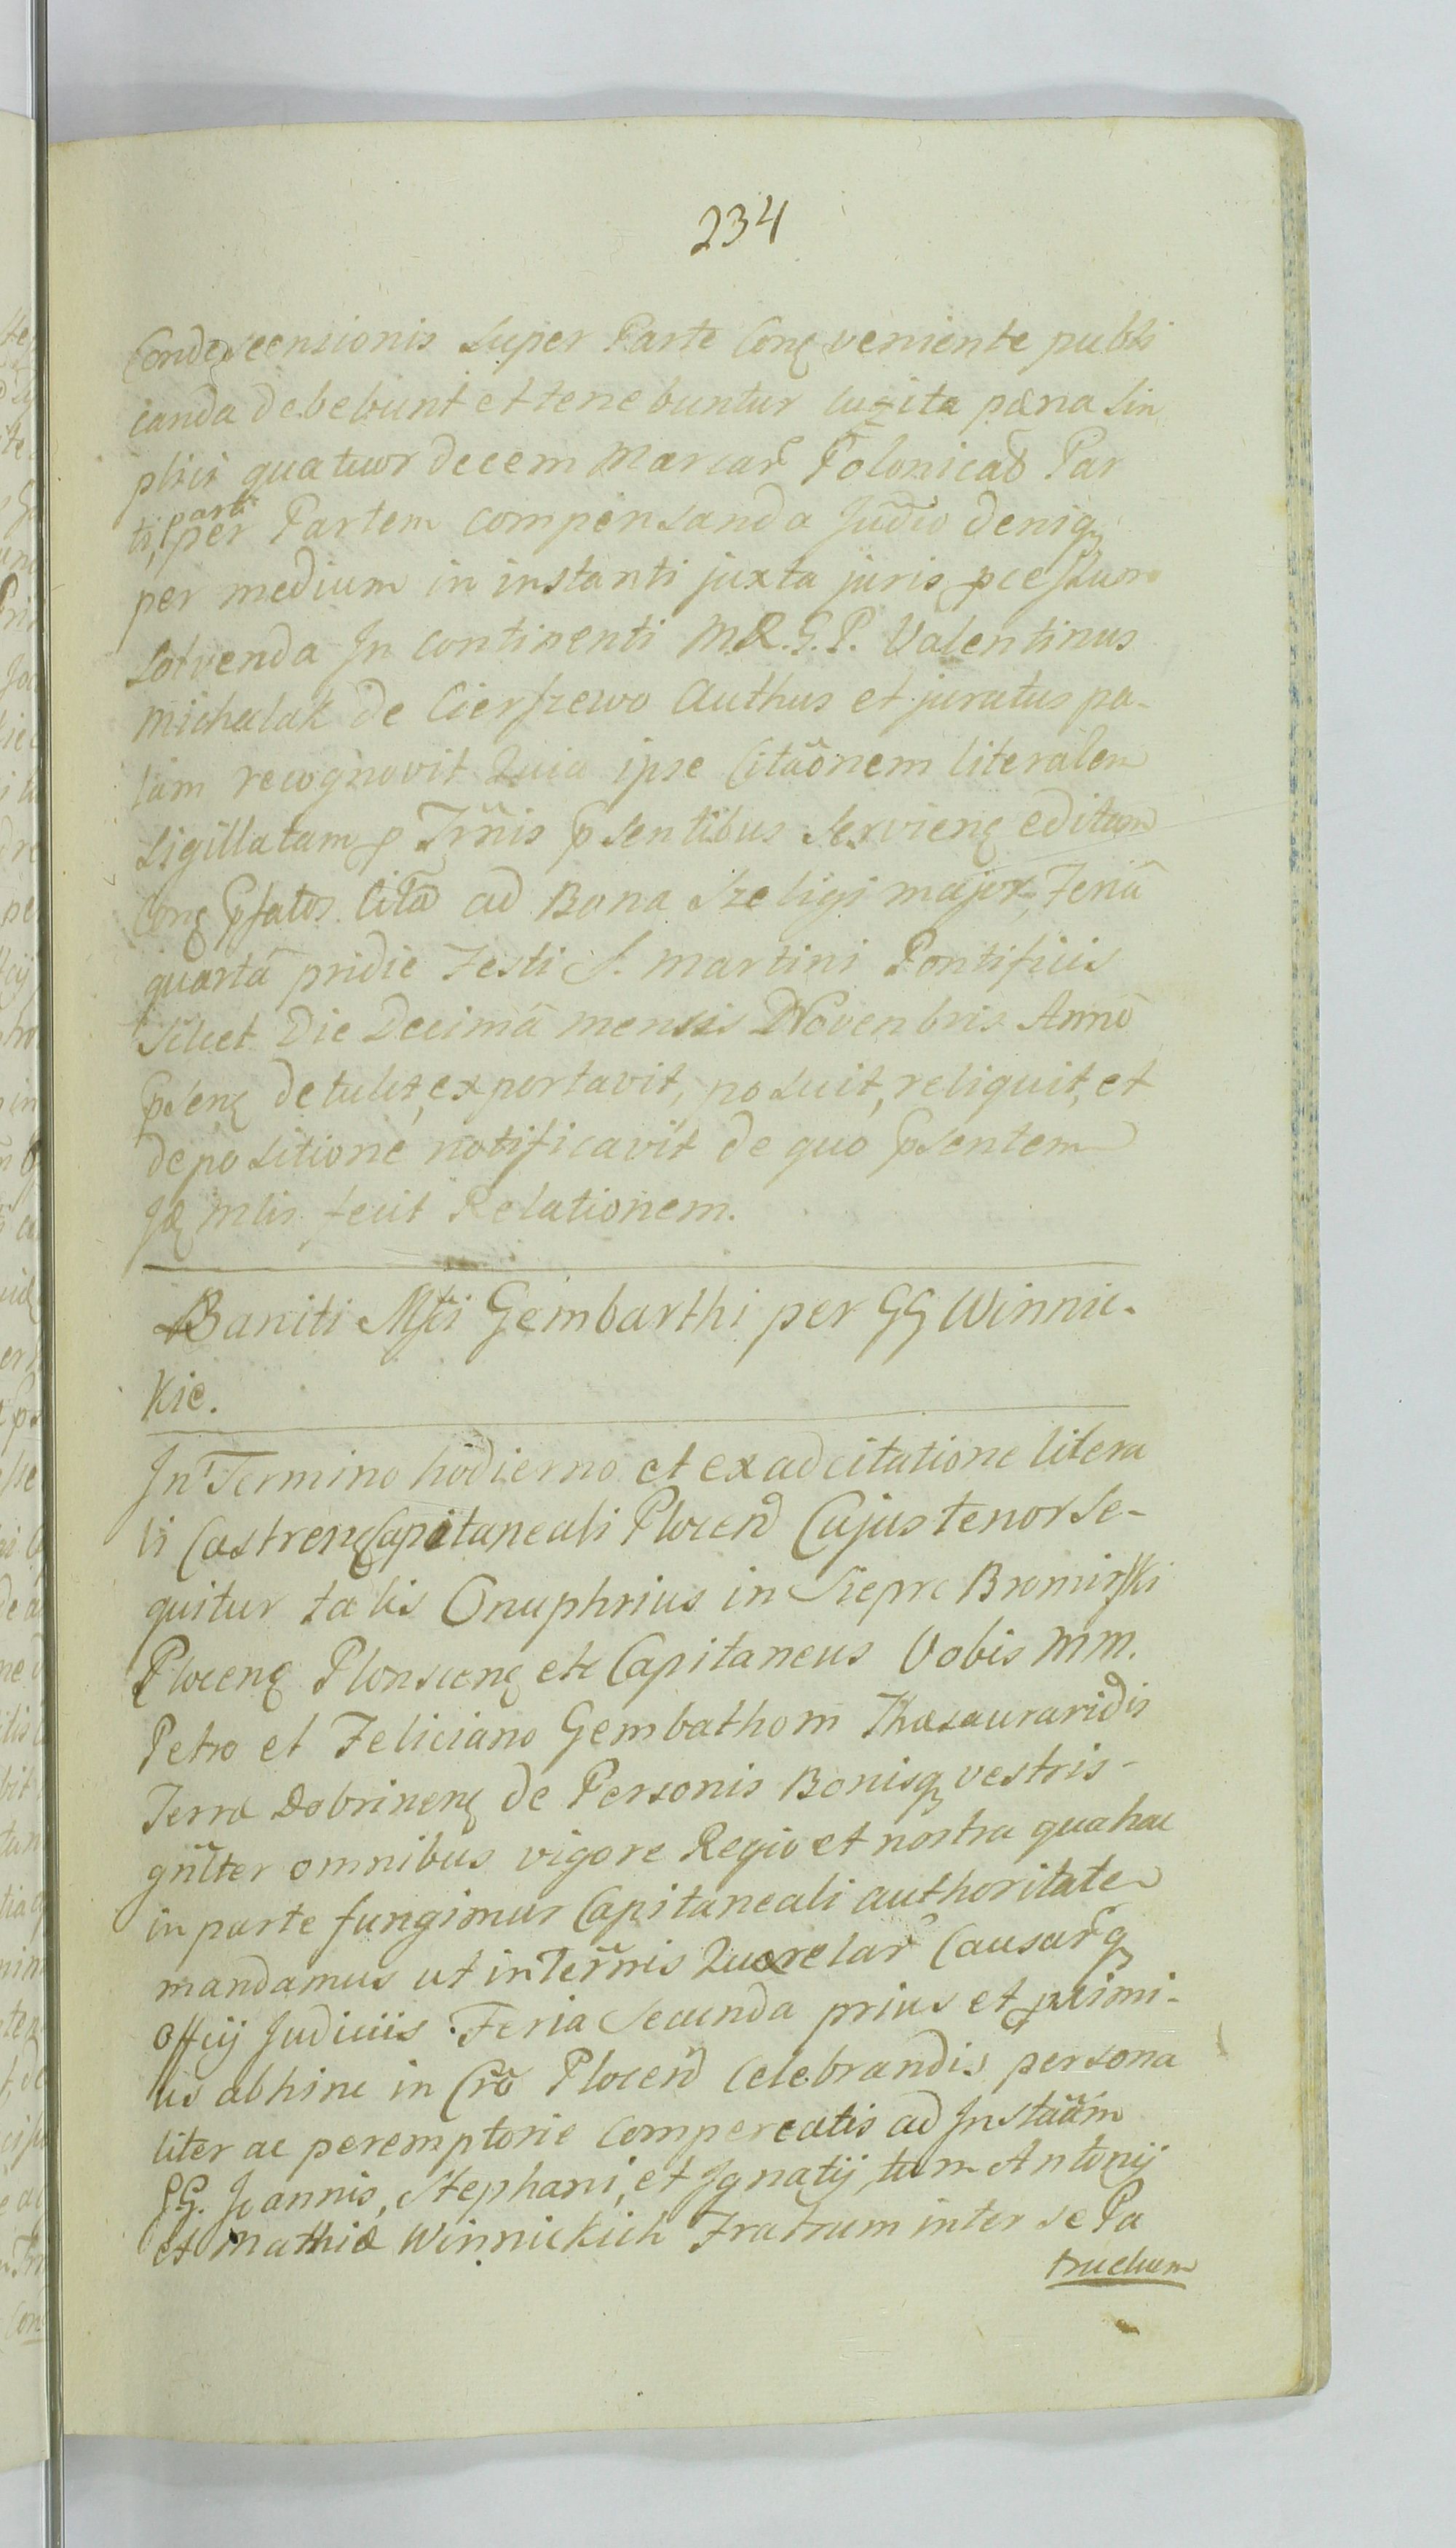 234
Condescensionis super Parte Conq veniente publi
canda debebunt et tenebuntur lugita pæna sin
plici quatuor decem Marcar Polonicad Par
ti, parti per Partem compensanda Judio deniq
per medium in instanti juxta juris
solvenda In continenti M.R.G.P. Valentinus
Michalak de Cierszewo Authus et juratus pa-
lam recognovit Quia ipse Citãonem literalem
sigillatam p Trm̃is psentibus servienq editam
Conq psatos Cita ad Bona Szeligi major, Feriâ
quartâ pridie Festi S. Martini Pontificis
scilicet Die Decimâ mensis Novenbris Annô
psenq detulit, exportavit, posuit, reliquit, et
depositione notificavit de quo psentem
Idq Mlis fecit Relationem.
Baniti Mfci Gembarthi per GG Winnic-
kie.
In Termino hodierno et ex adcitatione litera
li Castrenq Capitaneali Plocen Cujus tenor se-
quitur talis Onuphrius in Siepre Bromirski
Plocenq Plonscenq etc Capitaneus Vobis MM.
Petro et Feliciano Gembathom Thæsauraridis
Terræ Dobrinenq de Personis Bonisq vestris-
gñlter omnibus vigore Regio et nostra qua hac
in parte fungimur Capitaneali authoritate
mandamus ut in Ter̃mis Querelar Causarq
Officij Judiciis Feria Secunda prius et primi-
tus abhinc in Crõ Plocen celebrandis persona
liter ac peremptorie compereatis ad Instañm
GG. Joannis, Stephani, et Ignatij, tum Antonij
et Mathiæ Winnickich Fratrum inter se Pa
truelium